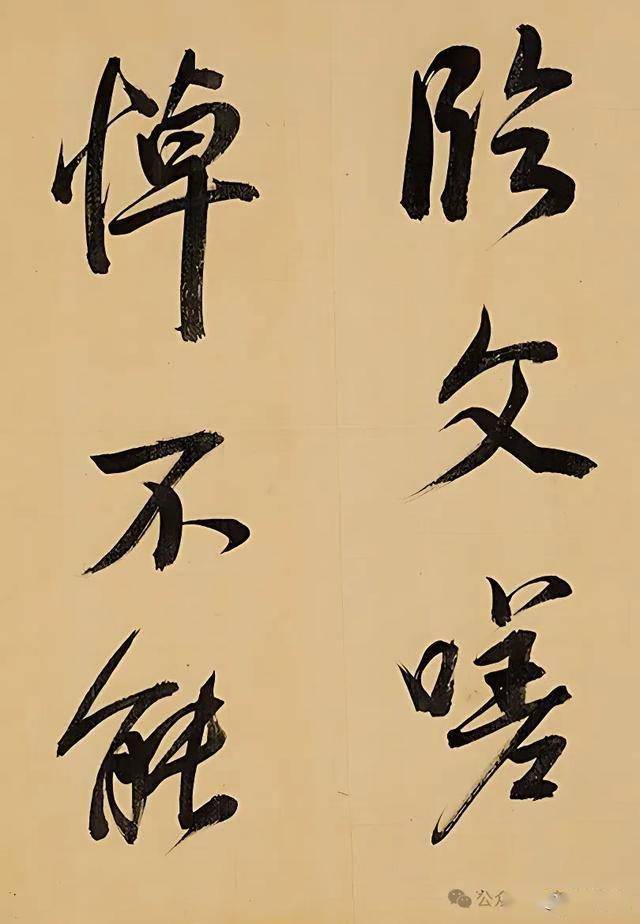 臨文嗟
悼不能
公众